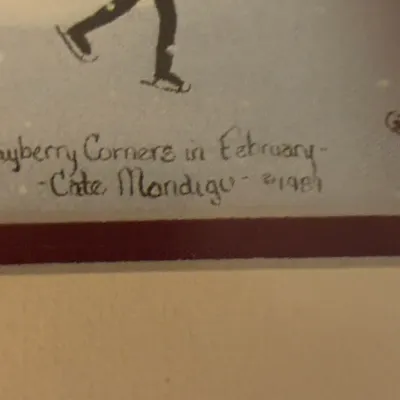 ayberry Corners in February-
-Cate Mandigo- ©1989